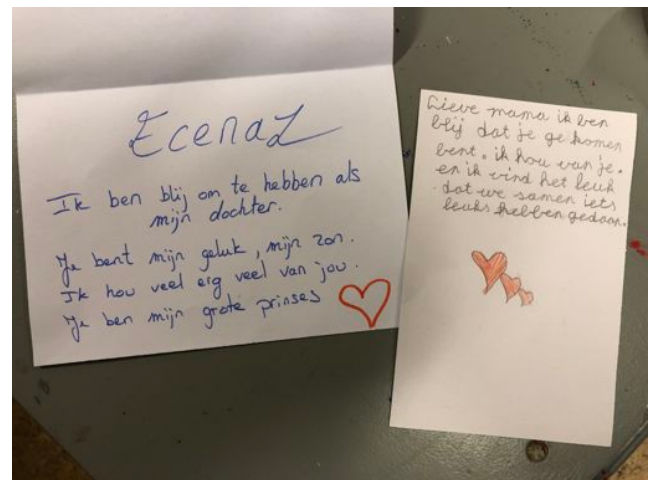 Ecenaz
Ik ben blij om te hebben als
mijn dochter.
Je bent mijn geluk, mijn zon.
Ik hou veel erg veel van jou.
Je ben mijn grote prinses
Lieve mama ik ben
blij dat je ge komen
bent. ik hou van je.
en ik vind het leuk
dat we samen iets
leuks hebben gedaan.